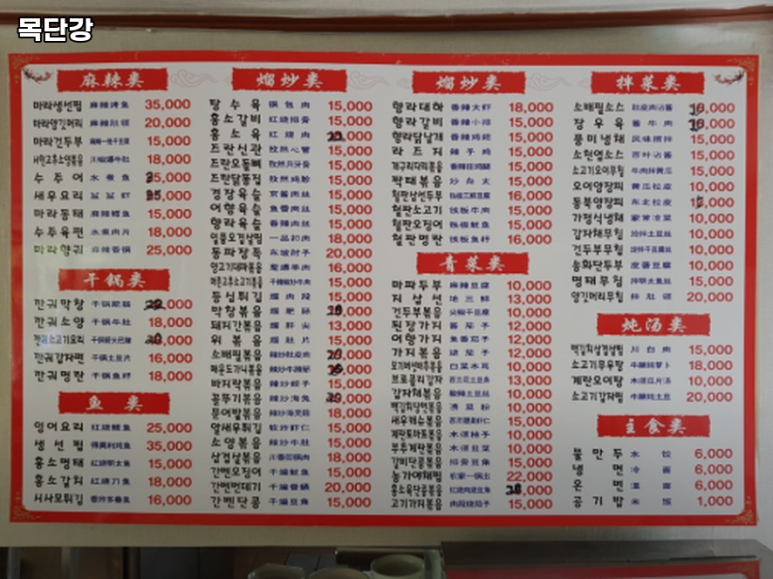 목단강
麻辣类
마라생선찜 麻辣烤鱼 35,000
마라양깃머리 麻辣肚领 20,000
마라건두부 15,000
18,000
수주어 水煮鱼 5,000
새우요리 盆盆虾
마라동태 麻辣鳕鱼 15,000
수주육편 水煮肉片 18,000
마라향궈 麻辣香锅 25,000
干锅类
깐궈막창 干锅肥肠
깐궈소양 干锅牛肚 18,000
깐궈감자편 干锅土豆片 16,000
깐궈명란 干锅鱼籽 18,000
鱼类
잉어요리 红烧鲤鱼 25,000
생선찜 35,000
홍소명태 红烧明太鱼 15,000
홍소갈치 红烧刀鱼 18,000
시사모튀김 16,000
熘炒类
탕수육 锅包肉 15,000
홍소갈비 红烧排骨 15,000
홍소육 红烧肉
즈란신관 孜然心管 15,000
즈란오돌뼈 15,000
즈란닭똥집 孜然鸡胗 15,000
경장육슬 京酱肉丝 15,000
어향육슬 鱼香肉丝 15,000
향라육슬 香辣肉丝 15,000
一品扣肉 18,000
동파장족 东坡肘子 20,000
16,000
15,000
등심튀김 熘肉段 15,000
막창볶음 熘肥肠
돼지간볶음 熘肝尖 13,000
위볶음 熘肚片 15,000
소배필볶음
바지락볶음 辣炒蚬子 15,000
골뱅이볶음 辣炒海兔
문어발볶음 18,000
알새우튀김 软炸虾仁 15,000
소양볶음 辣炒牛肚 15,000
삼겹살볶음 18,000
간삔오징어 干煸鱿鱼 15,000
간삔번데기 干煸蚕蛹 20,000
간삔단콩 干煸豆角 15,000
熘炒类
향라대하 香辣大虾 18,000
향라갈비 15,000
향라닭날개 15,000
라즈지 辣子鸡 15,000
15,000
15,000
16,000
철판소고기 铁板牛肉 15,000
철판오징어 铁板鱿鱼 15,000
철판명란 铁板鱼籽 16,000
青菜类
마파두부 麻辣豆腐 10,000
지삼선 地三鲜 13,000
건두부볶음 尖椒干豆腐 10,000
된장가지 酱茄子 12,000
어향가지 鱼香茄子 12,000
가지볶음 烧茄子 12,000
白菜木耳 10,000
브로콜리감자 13,000
감자채볶음 10,000
清菜粉 10,000
15,000
계란토마토볶음 10,000
부추계란볶음 10,000
갈비단콩볶음 排骨豆角 15,000
농가야채찜 22,000
고기가지볶음 肉段烧茄子 15,000
拌菜类
소배필소스 肚皮肉沾酱
장우육 酱牛肉
풍미냉채 风味拼拌 15,000
소천엽소스 百叶沾酱 15,000
소고기오이무침 牛肉拌黄瓜 15,000
오이양장피 黄瓜拉皮 10,000
동북양장피 东北拉皮
가정식냉채 家常凉菜 10,000
감자채무침 凉拌土豆丝 10,000
건두부무침 凉拌干豆腐丝 10,000
송화단두부 皮蛋豆腐 10,000
명태무침 拌明太鱼丝 15,000
양깃머리무침 拌肚领 20,000
炖汤类
川白肉 15,000
소고기무우탕 牛腩炖萝卜 18,000
계란오이탕 木须瓜片汤 10,000
소고기감자찜 牛腩炖土豆 20,000
主食类
물만두 水饺 6,000
냉면 冷面 6,000
온면 温面 6,000
공기밥 米饭 1,000